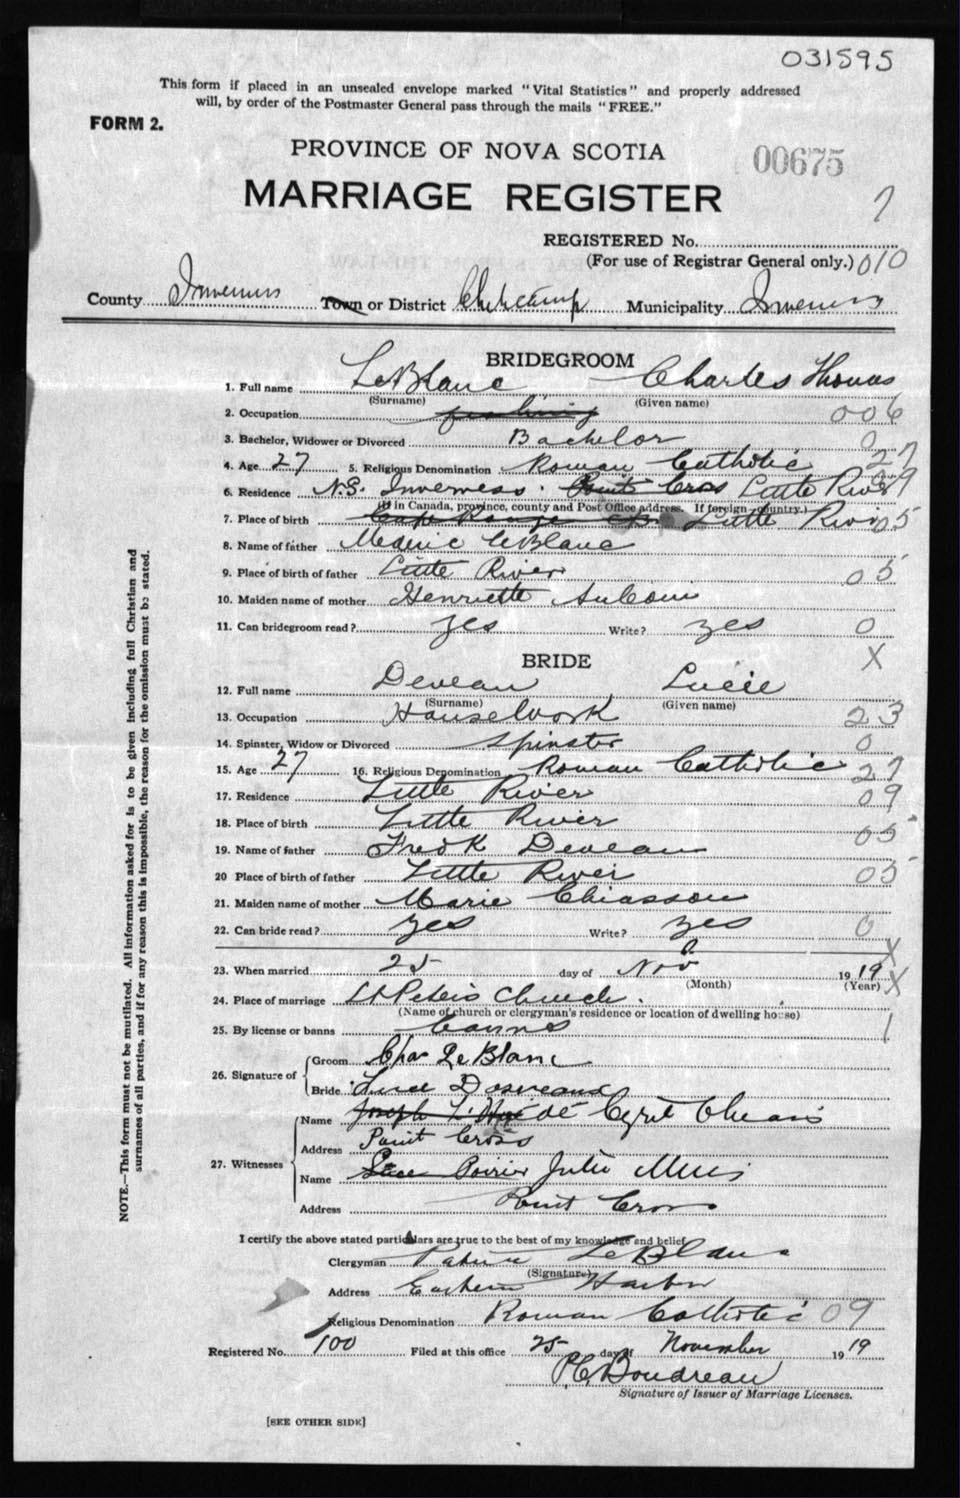 031595
This form if placed in an unsealed envelope marked "Vital Statistics" and properly addressed
will, by order of the Postmaster General pass through the mails "FREE."
FORM 2.
PROVINCE OF NOVA SCOTIA
00675
MARRIAGE REGISTER
7
REGISTERED No.
(For use of Registrar General only.) 010
County Inverness Town or District Cheticamp Municipality Inverness
BRIDEGROOM
1. Full name LeBlanc Charles Thomas
(Surname) (Given name)
2. Occupation fishing 006
3. Bachelor, Widower or Divorced Bachelor 0
4. Age 27 5. Religious Denomination Roman Catholic 27
6. Residence N.S. Inverness. Point Cross Little River 09
(If in Canada, province, county and Post Office address. If foreign country.)
7. Place of birth Little River 05
8. Name of father Mederic LeBlanc
9. Place of birth of father Little River 05
10. Maiden name of mother Henriette AuCoin
11. Can bridegroom read? yes Write? yes 0
X
BRIDE
12. Full name Deveau Lucie
(Surname) (Given name)
13. Occupation HouseWork 23
14. Spinster, Widow or Divorced Spinster 0
15. Age 27 16. Religious Denomination Roman Catholic 27
17. Residence Little River 09
18. Place of birth Little River 05
19. Name of father Fredk Deveau
20 Place of birth of father Little River 05
21. Maiden name of mother Marie Chiasson
22. Can bride read? yes Write? yes 0
X
23. When married 25 day of Nov 1919 X
(Month) (Year)
24. Place of marriage St Peters Church.
(Name of church or clergyman's residence or location of dwelling house)
25. By license or banns banns 1
26. Signature of Groom Chas LeBlanc
Bride
27. Witnesses Name Joseph
Address Point Cross
Name Poirier
Address Point Cross
I certify the above stated particulars are true to the best of my knowledge and belief
Clergyman LeBlanc
(Signature)
Address Eastern Harbor
Religious Denomination Roman Catholic 09
Registered No. 100 Filed at this office 25 day of November 1919
PC Boudreau
Signature of Issuer of Marriage Licenses.
[SEE OTHER SIDE]
NOTE.—This form must not be mutilated. All information asked for is to be given including full Christian and
surnames of all parties, and if for any reason this is impossible, the reason for the omission must be stated.